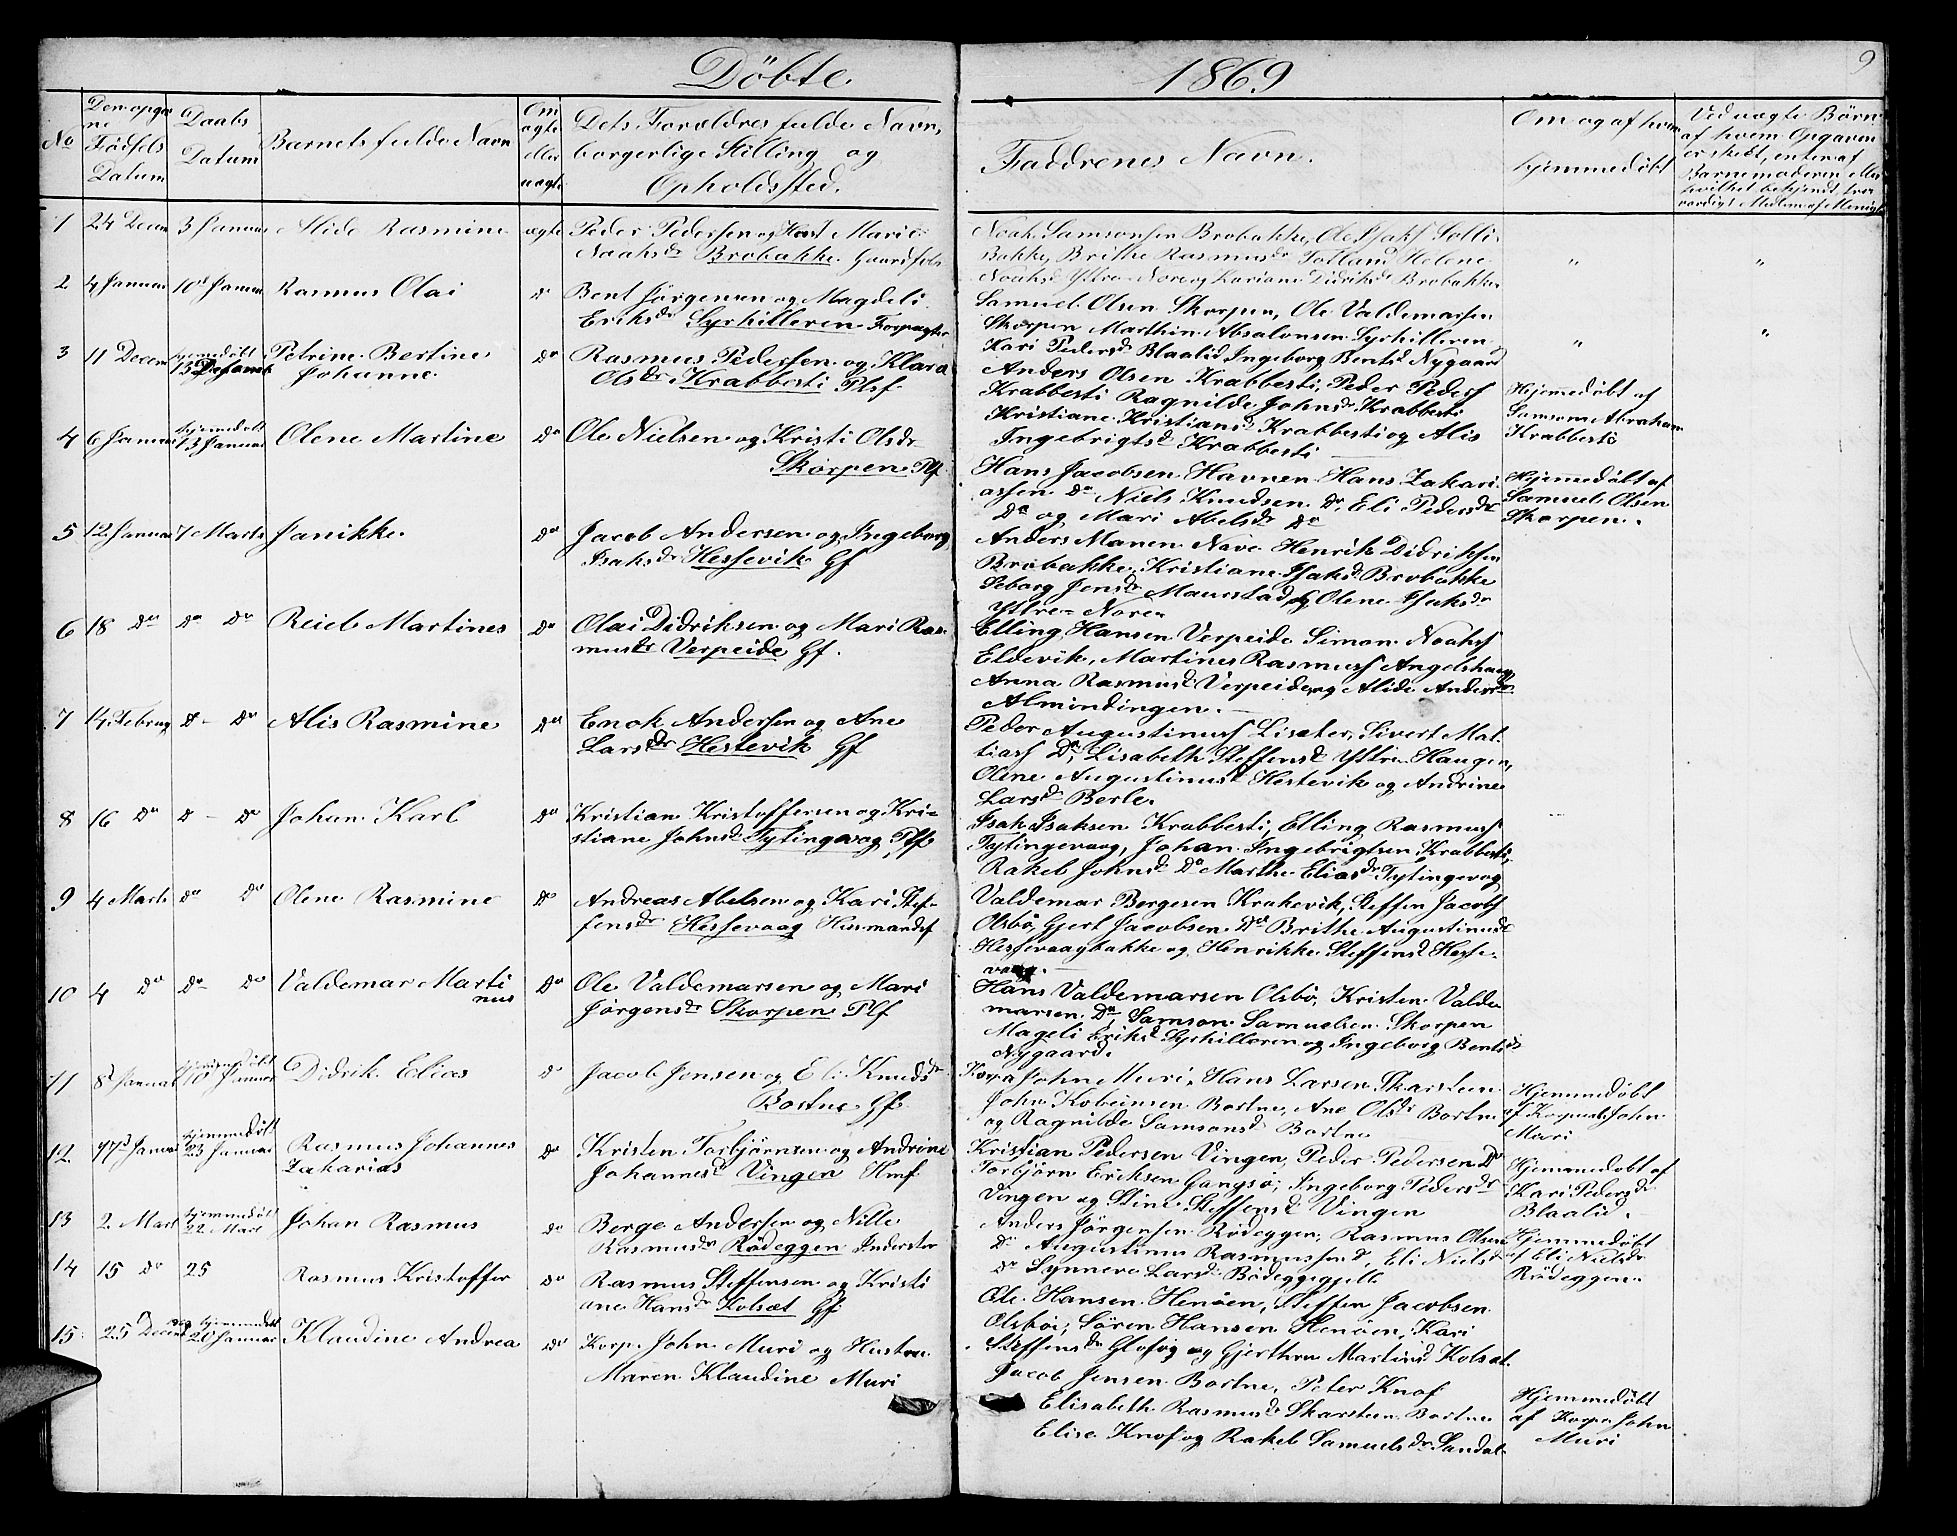 Döbte 1869
9
No
Den opgivne Födsels Datum
Daabs Datum
Barnets fulde Navn
Om ægte eller uægte
Dets Forældres fulde Navn, borgerlige Stilling og Opholdssted.
Faddrenes Navn.
Om og af hvem hjemmedöbt
Ved uægte Börn af hvem Opgaven er skebt, enten af Barnemoderen eller
1 24 Decem 3 Januar Alide Rasmine ægte Peder Pedersen og Kone Marie
Noahsdr Brobakke Gaardfols
Noah Samsonsen Brobakke, Ole Isaks Solli
Bakke, Brithe Rasmusdr Totland Helene
Noahsd Yttre Nore og Lariane Didriksd Brobakke
" "
2 4 Januar 10d Januar Rasmus Olai do Bent Jörgensen og Magdeli
Eriksdr Syrhilleren Forpagter
Samuel Olsen Skorpen, Ole Valdemarsen
Skorpen Marthin Absalonsen Syrhilleren
Kari Pedersd Blaalid, Ingeborg Bentsd Nygaard
" "
3 11 Decem hjemmedöbt 13 Decemb Petrine Bertine
Johanne
do Rasmus Pedersen og Klara
Olsdr Krabbesti Plsf
Anders Olsen Krabbesti, Peder Peders
Krabbesti Ragnilde Johnsd Krabbesti
Kristiane Kristiansd Krabbesti og Alis
Ingebrigtsd Krabbesti
Hjemmedöbt af
Samsom Abraham
Krabbestö
4 6 Januar hjemmedöbt 13 Januar Olene Martine do Ole Nielsen og Kristi Olsdr
Skorpen Plf
Hans Jacobsen Havnen Hans Zakari
assen do Niels Knudsen do Eli Pedersdr
do og Mari Abelsdr do
Hjemmedöbt af
Samuel Olsen
Skorpen.
5 12 Januar 7 Marts Janikke do Jacob Andersen og Ingeborg
Isaksdr Hessevik Gf
Anders Monen Nave Henrik Didriksen
Brobakke, Kristiane Isaksd Brobakke
Seborg Jensdr Maurstad og Olene Isaksdr
Yttre Nore
6 18 do do do Reiel Martines do Olai Didriksen og Mari Ras
musdr Verpeide Gf.
Elling Hansen Verpeide Simon Noahs
Eldevik, Martines Rasmuss Angelshaug
Anna Rasmusd Verpeide og Alide Andersdr
Almindingen.
7 14 Februa do - do Alis Rasmine do Enok Andersen og Ane
Larsdr Hestevik Gf
Peder Augustinuss Liseter, Sivert Mat
tiass do, Lisabeth Steffensd Yttre Haugen,
Olene Augustinusd Hestevik og Andrine
Larsd Berle.
8 16 do do - do Johan Karl do Kristian Kristoffersen og Kri-
stiane Johnsd Tytingvaag Plf
Isak Isaksen Krabbesti, Elling Rasmuss
Tytingevaag, Johan Ingebrigtsen Krabbesti,
Rakel Johnsd do Marthe Eliasdr Tytingvag
9 4 Marts do do Olene Rasmine do Andreas Abelsen og Kari Stef-
fensdr Hessevaag Husmandsf
Valdemar Borgesen Krakevik, Steffen Jacobs
Olsbö, Gjert Jacobsen do Brithe Augustinusd
Hessevaagbakke og Henrikke Steffensd Hesse-
vaag.
10 4 do do do Valdemar Marti
nus
do Ole Valdemarsen og Mari
Jörgensdr Skorpen Plf
Hans Valdemarsen Olsbö, Kristen Valde
marsen do, Samson Samuelsen Skorpen
Mageli Eriksd Syrhilleren og Ingeborg Bentsdr
Nygaard.
11 8d Januar hjemmedöbt 10 Januar Didrik Elias do Jacob Jensen og Eli Knudsdr
Bortne Gf
Korp John Muri, Hans Larsen Skarsteen
John Kobeinsen Bortne, Ane Olsdr Bortne
og Ragnilde Samsonsd Bortne
Hjemmedöbt
af Korporal John
Muri
12 17d Januar hjemmedöbt 23 Januar Rasmus Johannes
Zakarias
do Kristen Torbjörnsen og Andrine
Johannesd Vingen Hmf
Kristian Pedersen Vingen, Peder Pedersen do
Torbjörn Eriksen Gangsö, Ingeborg Pedersdr
Vingen og Stine Steffensd Vingen
Hjemmedöbt af
Kari Pedersdr
Blaalid.
13 2 Mart hjemmedöbt 22 Mart Johan Rasmus do Borge Andersen og Nille
Rasmusdr Rödeggen Inderster
Anders Jörgensen Rödeggen, Rasmus Olsen
do Augustinus Rasmussen do, Eli Nielsd
do Synneve Larsd Rödeggjell
Hjemmedöbt
af Eli Nielsdr
Rödeggen.
14 15 do 25 Rasmus Kristoffer do Rasmus Steffensen og Kristi
ane Hansdr Kolset Gf
Ole Hansen Henöen, Steffen Jacobsen
Olsböe, Sören Hansen Henöen, Kari
Steffensdr og Gjerthru Martinsd Kolset
15 25 Decem hjemmedöbt 20 Januar Klaudine Andrea do Korp. John Muri og Hustru
Maren Klaudine Muri
Jacob Jensen Bortne, Peter Knof
Elisabeth Rasmusdr Skarsteen Bortne
Elise Knof og Rakel Samuelsdr Sandal
Hjemmedöbt
af Korp John
Muri